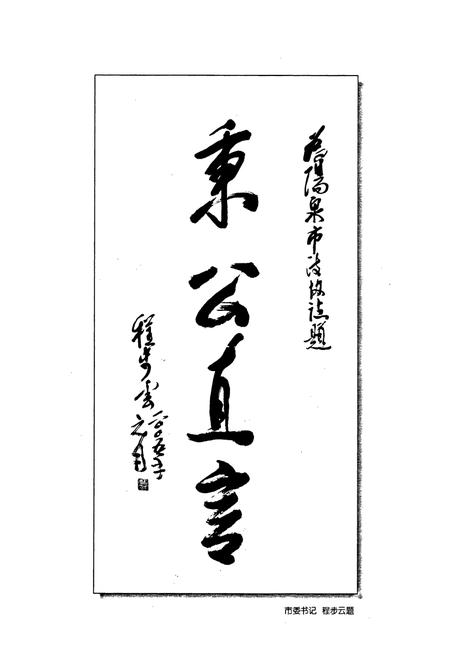 為陽泉市政协誌題
秉公直言
程步雲
二〇〇五年
元月
市委书记 程步云题